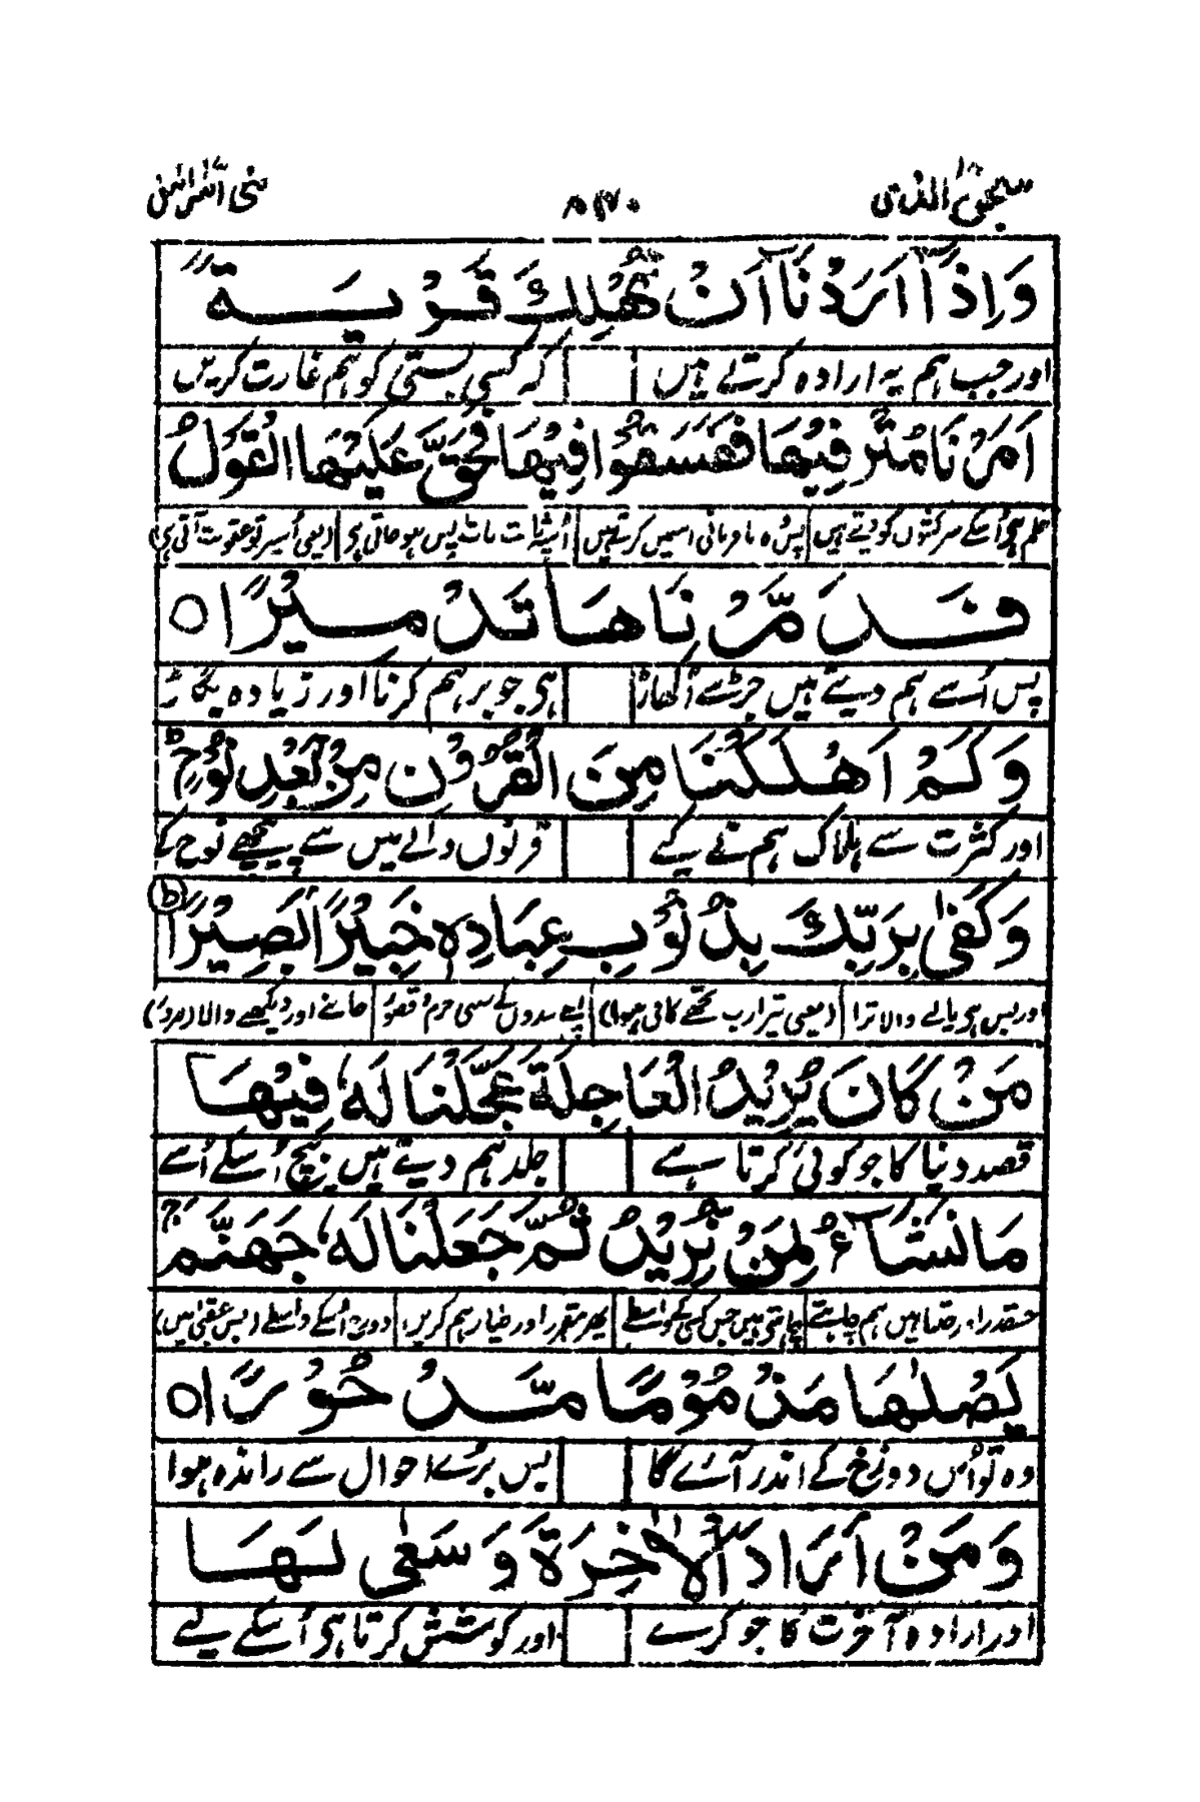 سبحٰن الذی ۸۴۷۰ بنی اسرائیل
وَاِذَآ اَرَدْنَآ اَنْ نُّهْلِكَ قَرْيَةً
اور جب ہم یہ ارادہ کرتے ہیں کہ کسی بستی کو ہم غارت کریں
اَمَرْنَا مُتْرَفِيْهَا فَفَسَقُوْا فِيْهَا فَحَقَّ عَلَيْهَا الْقَوْلُ
اُسکے سرکشوں کو دیتے ہیں پس وہ نافرمانی اسمیں کرتے ہیں اُسپہ ثابت بات پس ہو جاتی ہی (یعنی اُسپر تو عقوبت آتی ہی)
فَدَمَّرْنٰهَا تَدْمِيْرًا ○
پس اُسے ہم دیتے ہیں جڑ سے اُکھاڑ ہی جو بر ہم کرنا اور زیادہ بگاڑ
وَكَمْ اَهْلَكْنَا مِنَ الْقُرُوْنِ مِنْۢ بَعْدِ نُوْحٍ ط
اور کثرت سے ہلاک ہم نے کیے قرنوں والے میں سے پیچھے نوح کے
وَكَفٰى بِرَبِّكَ بِذُنُوْبِ عِبَادِهٖ خَبِيْرًۢا بَصِيْرًا ط
اور بس ہی پالنے والا ترا (یعنی تیرا رب تجھے کافی ہوا) اپنے بندوں کے سبھی جرم قصور جاننے اور دیکھنے والا
مَنْ كَانَ يُرِيْدُ الْعَاجِلَةَ عَجَّلْنَا لَهٗ فِيْهَا
قصد دنیا کا جو کوئی کرتا ہے جلد ہم دیتے ہیں بیچ اُسکے اُسے
مَا نَشَآءُ لِمَنْ نُّرِيْدُ ثُمَّ جَعَلْنَا لَهٗ جَهَنَّمَ ج
ہیں ہم چاہتے چاہتے ہیں جس کسی کے واسطے پھر مقرر اور طیار ہم کریں دوزخ اُسکے واسطے (بس عقبیٰ میں)
يَصْلٰىهَا مَذْمُوْمًا مَّدْحُوْرًا ○
وہ تو اُس دوزخ کے اندر آئے گا بس بُرے احوال سے راندہ ہوا
وَمَنْ اَرَادَ الْاٰخِرَةَ وَسَعٰى لَهَا
اور ارادہ آخرت کا جو کرے اور کوشش کرتا ہی اُسکے لیے